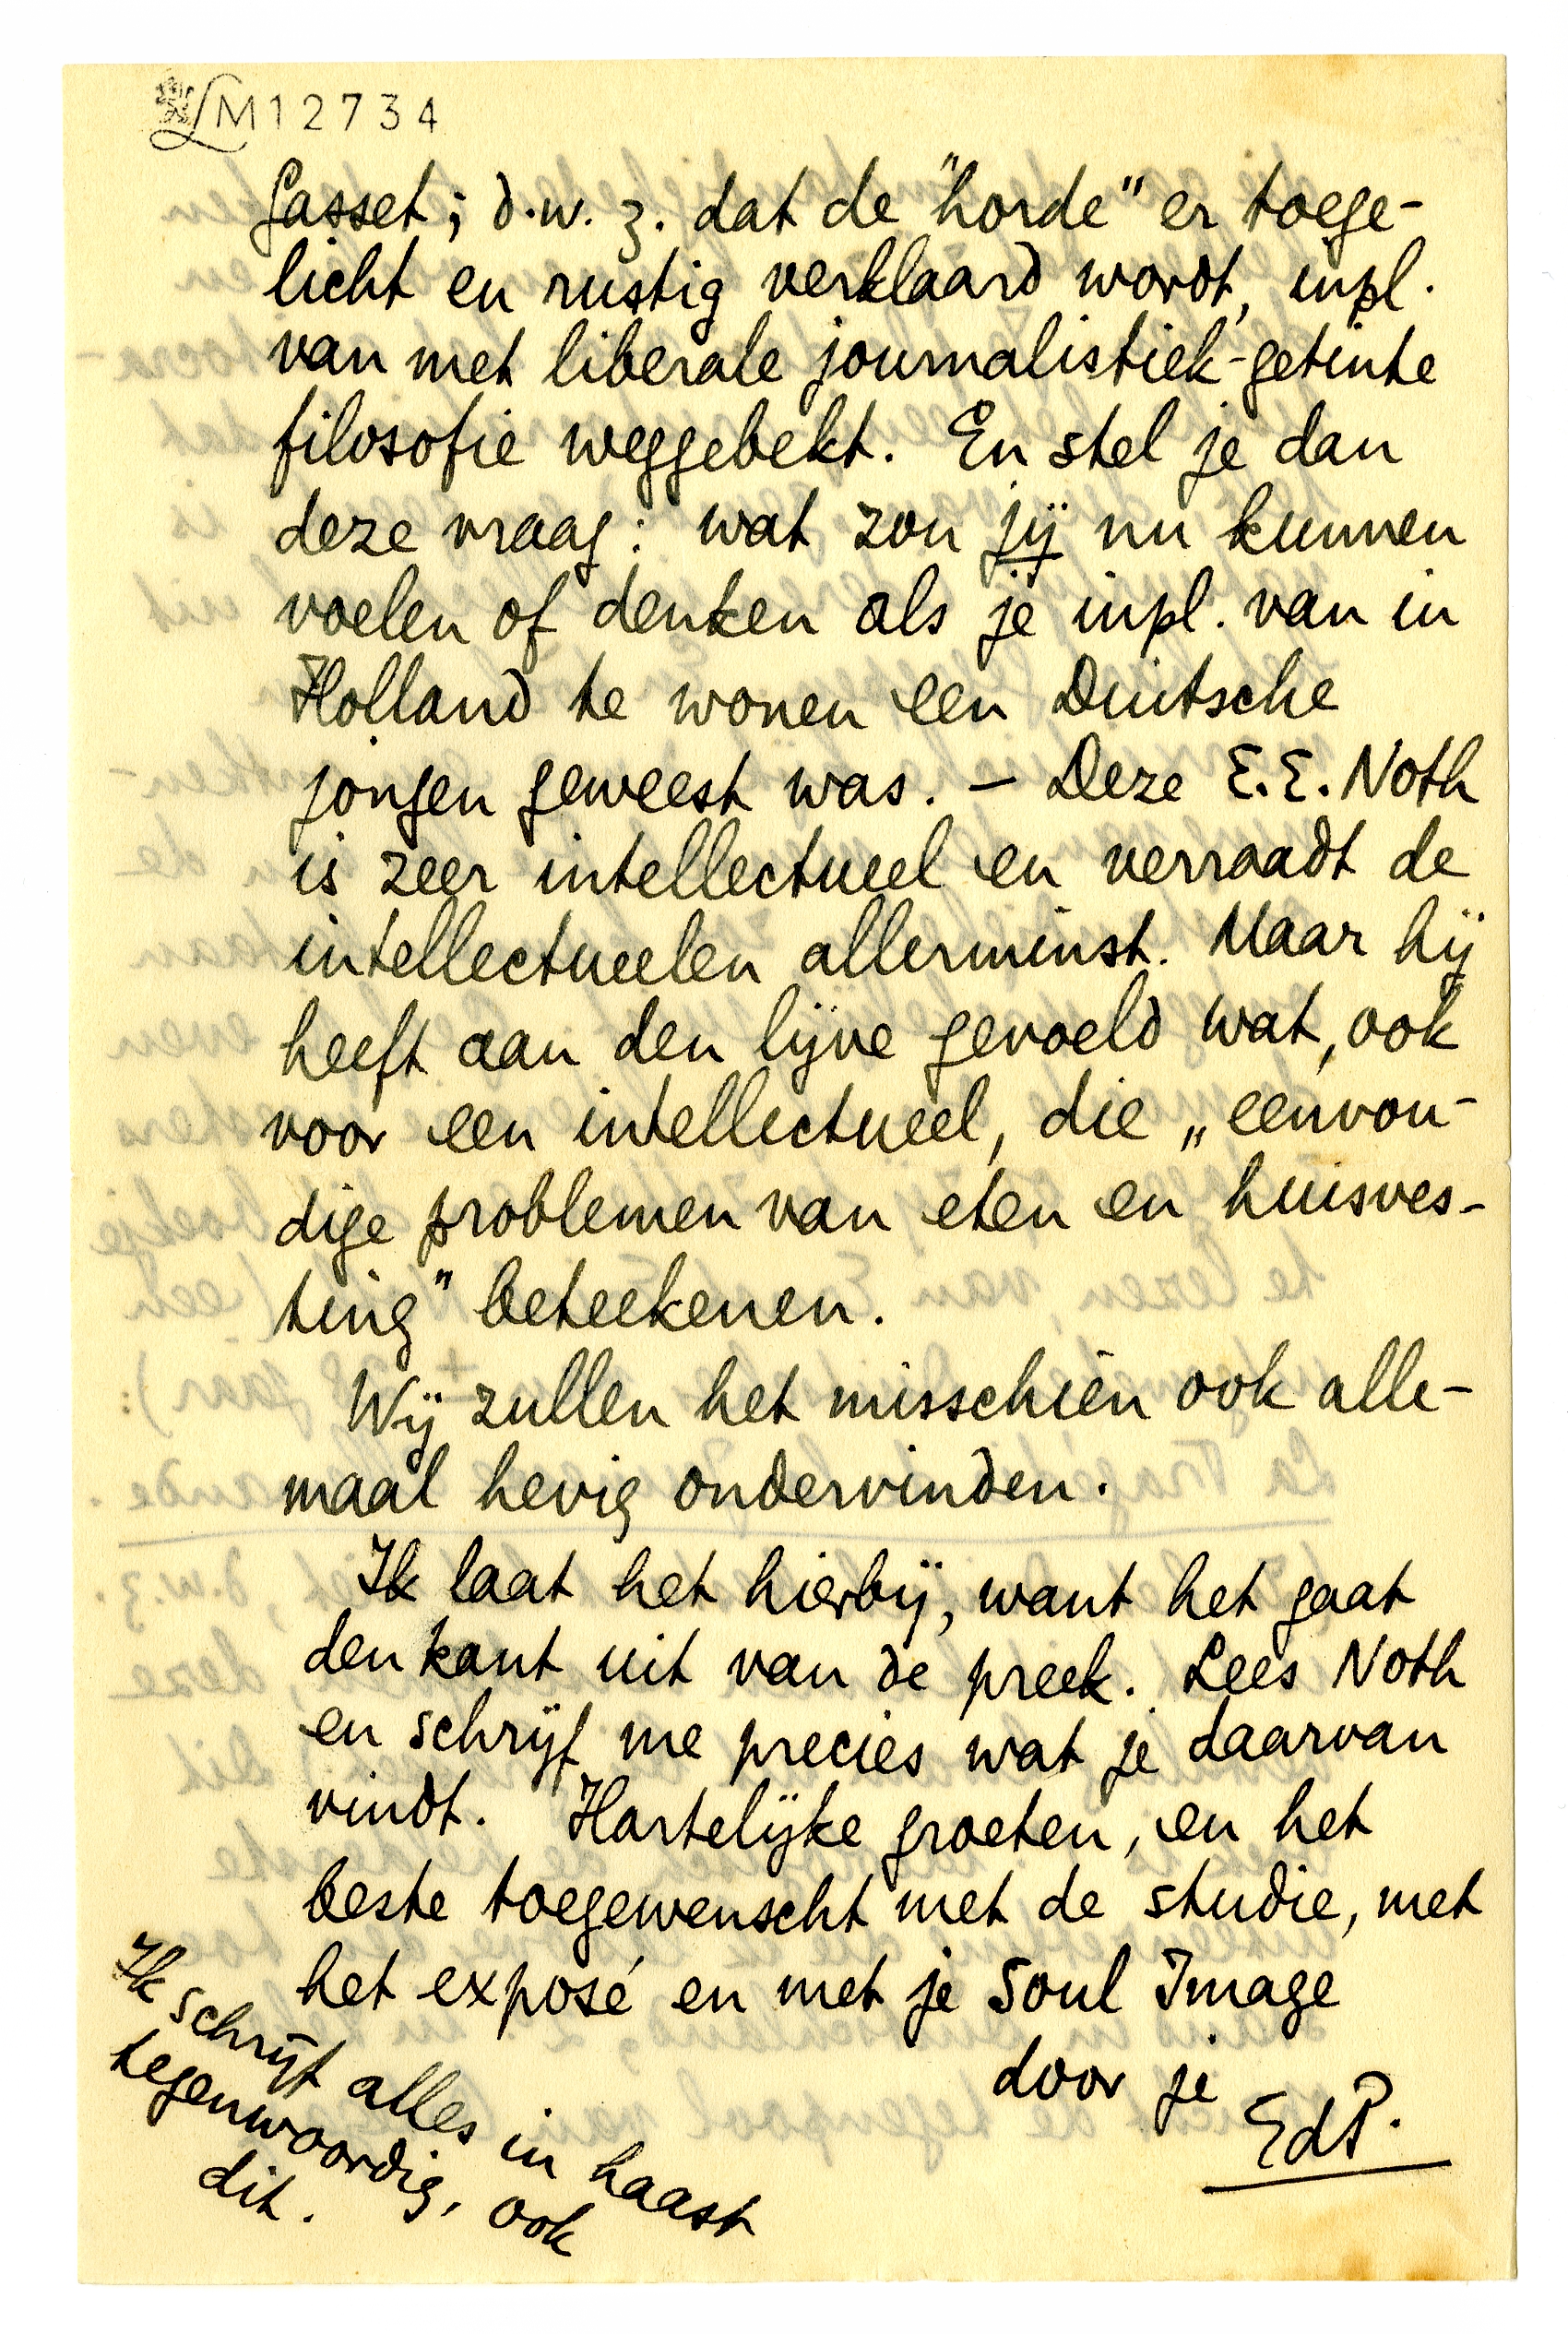 LM12734
Gasset; d.w.z. dat de "horde" er toege-
licht en rustig verklaard wordt, inpl.
van met liberale journalistiek-getinte
filosofie weggebekt. En stel je dan
deze vraag: wat zou jij nu kunnen
voelen of denken als je inpl. van in
Holland te wonen een Duitsche
jongen geweest was. – Deze E.E. Noth
is zeer intellectueel en verraadt de
intellectueelen allerminst. Maar hij
heeft aan den lijve gevoeld wat, ook
voor een intellectueel, die „eenvou-
dige problemen van eten en huisves-
ting" beteekenen.
Wij zullen het misschien ook alle-
maal hevig ondervinden.
Ik laat het hierbij, want het gaat
den kant uit van de preek. Lees Noth
en schrijf me precies wat je daarvan
vindt. Hartelijke groeten, en het
beste toegewenscht met de studie, met
het exposé en met je Soul Image
door je
EdP.
Ik schrijf alles in haast
tegenwoordig, ook
dit.